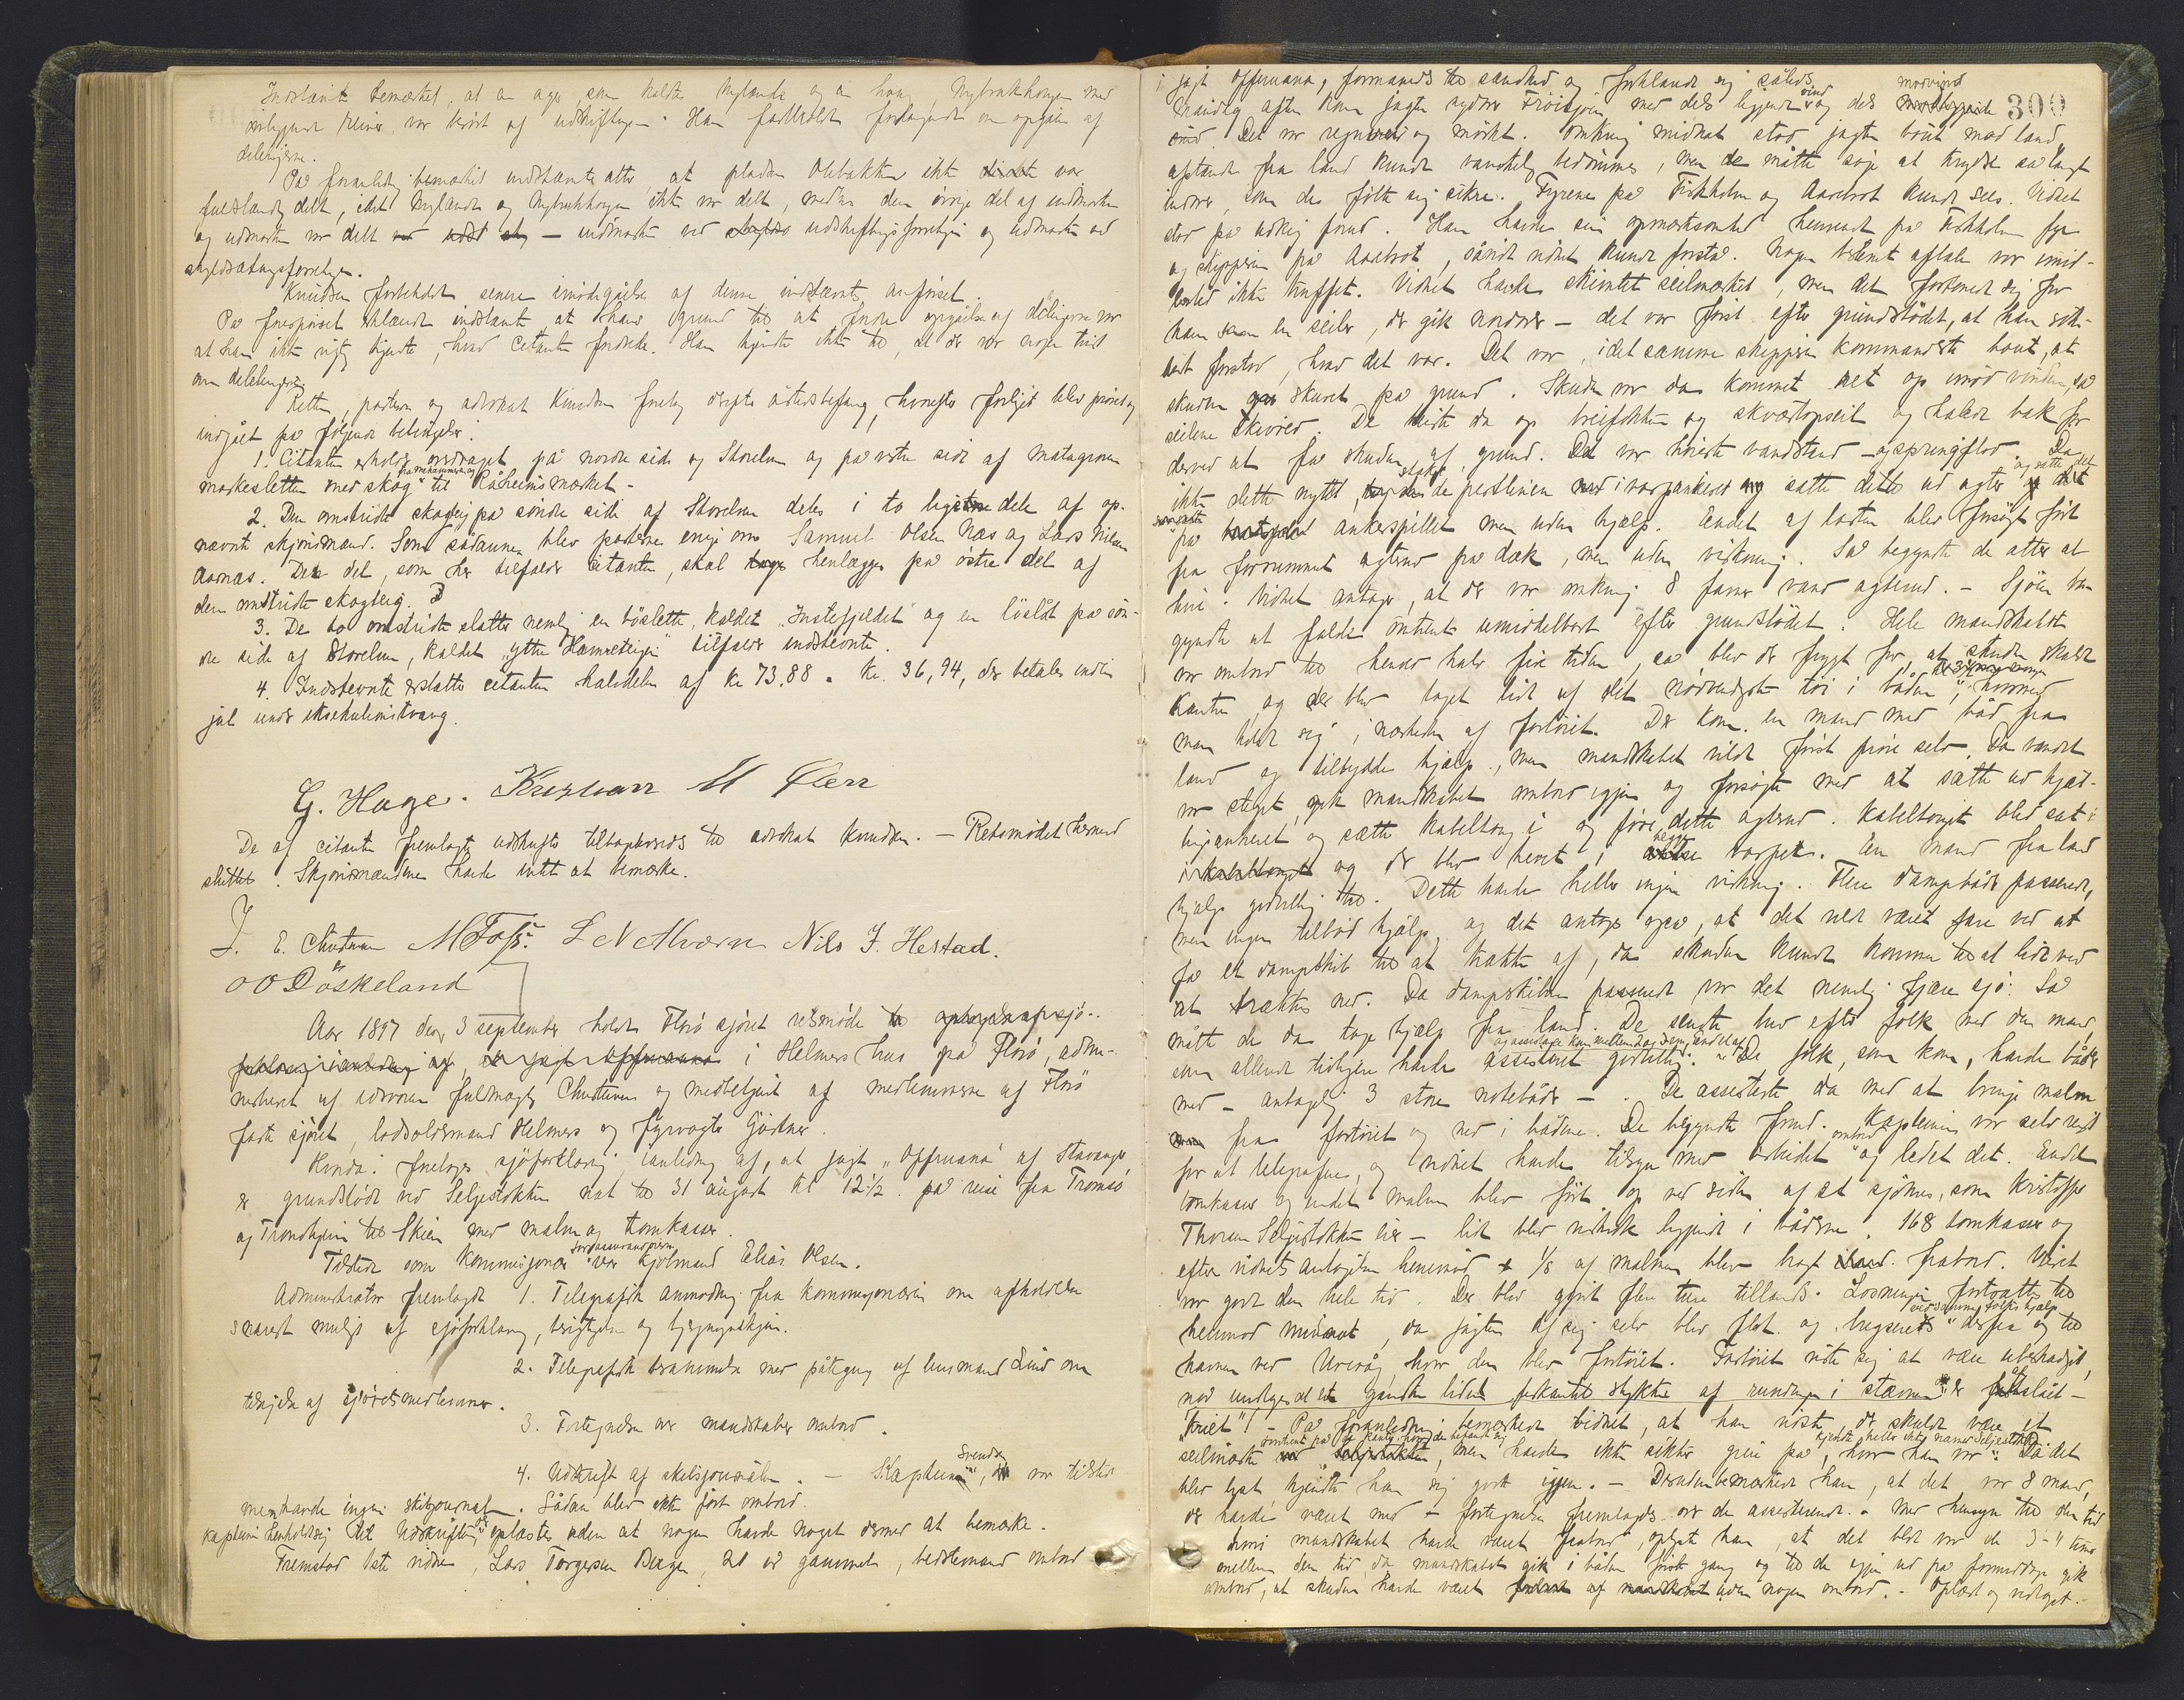 Indstævnte bemærket, at en ager som kaldes Nylande og en haug Nybrækhougen med
omliggende reiner, var berört af udskiftningen. Han fastholdt forlangende om opgjær af
delingerne.
På foranledning bemærket indstævnte atter, at pladsen Olebakken ikke var
fuldstændig delt, idet Nylande og Nybrækhougen ikke var delt, medens den övrige del af indmarken
og udmarken var delt — indmarken ved udskiftningsforretningen og udmarken ved
skyldsætningsforretningen.
Knudsen forbeholdt senere imödegåelse af denne indstævntes anförsel.
På forespörsel erklærede indstævnte at hans grund til at fordre opgåelse af delingerne var
at han ikke rigtig kjendte, hvad citanten fordrede. Han kjendte ikke til, at der var nogen tvist
om delelinjerne.
Retten, parterne og advokat Knudsen foretog derpå åstedsbefaring, hvorefter forliget blev prövet og
indgået på följende betingelser:
1. Citanten erholder ordraget på nordre side og Storelven og på vestre side af matagroven
markesletten med skog til Råheimsmærket -
2. Den omstridte skogteig på söndre side af Storelven deles i to ligestore dele af op-
nævnte skjönsmænd. Som sådanne blev parterne enige om Samuel Olsen Næs og Lars Nilsen
Aarnæs. Den del, som her tilfalder citanten, skal henlægges på östre del af
den omstridte skogteig.
3. De to omstridte slatter nemlig en böslette, kaldet "Instefjeldet" og en löslåt på sön-
dre side af Storelven, kaldet "ytre Hamreteigen" tilfalder indstævnte.
4. Indstævnte erstatter citanten halvdelen af kr 73.88 = kr. 36,94, der betales inden
jul under eksekutionstvang.
G. Hage. Kristian M Øien
De af citanten fremlagte udskrifter tilbageleveredes til advokat Knudsen. — Retsmödet hermed
sluttet. Skjönsmændene havde intet at bemærke.
E. Christensen M Foss. L N Alværn Nils J. Hestad.
O O Döskeland
Aar 1897 den 3 september holdt Florö sjöret retsmöde
i Helmers hus på Florö, admi-
nistreret af edsvoren fuldmægtig Christensen og medbetjent af medlemmerne af Florö
faste sjöret, lodsoldermand Helmers og fyrvogter Gjørtner.
Hvorda: foretoges sjöforklaring i anledning af, at jagt "Offenana" af Stavanger
er grundstödt ved Seljestokken nat til 31 august kl 12½ på reise fra Tromsö
og Trondhjem til Skien med malm og tomkasser.
Tilstede som kommissionær for assurandörerne var kjöbmand Elias Olsen.
Administrator fremlagde 1. Telegrafisk anmodning fra kommissionæren om afholdelse
snarest muligt af sjöforklaring, besigtigelse og bjergningsskjön.
2. Telegrafisk berammelse med påtegning af lensmand Lind om
tilsigelse af sjöretsmedlemmer.
3. Fortegnelse over mandskabet ombord.
4. Udskrift af skibsjournalen. — Kapteinen, Svendsen var tilstede
men havde ingen skibsjournal. Sådan blev ikke fört ombord.
Kapteinen henholdt sig til udskriften, der oplæstes uden at nogen havde noget dermed at bemærke.
Fremstod 1ste vidne, Lars Torgersen Berge, 21 år gammel, bedstemand ombord
300
i jagt Offenana, formanedes til sandhed og forklarede sig således
Mandag aften kom jagten sydover Fröisjöen med dels liggende vind og dels modvind
Det var regnveir og mörkt. Omkring midnat stod jagten bout mod land
afstand fra land kunde vanskelig bedömmes, men de måtte söge at krydse så langt
indover, som de fölte sig sikre. Fyrene på Fiskholm og Aarebrot kunde sees. Vidnet
stod på udkig forud. Han havde sin opmærksomhed henvendt på Fiskholm fyr
og skipperen på Aarebrot, såvidt vidnet kunde forstå. Nogen bestemt aftale var imid-
lertid ikke truffet. Vidnet havde skimtet seilmærket, men det fortonet sig for
ham som en seiler, der gik nordover — det var först efter grundstödet, at han sik-
kert forstod, hvad det var. Det var, idet samme skipperen kommanderte bout, at
skuden skuret på grund. Skuden var da kommet ret op imod vinden, så
seilene skivred. De heiste da op breifokken og skværtopseil og haledt bak for
derved at få skuden af grund. Det var höieste vandstand — og springflod. Da det
ikke dette nyttet, stak de pertlinen ned i varpankeret og satte dette ud agter og satte det
på ankerspillet men uden hjælp. Endel af lasten blev forsögt fört
fra forrummet agterud på dæk, men uden virkning. Så begyndte de atter at
hive. Vidnet antager, at der var omkring 8 favner vand agterud. — Sjöen be-
gyndte at falde omtrent umiddelbart efter grundstödet. Hele mandskabet
var ombord til henved halv fire tiden, så blev der frygt for at skuden skulde
kantre og der blev taget lidt af det nödvendigste töi i båden,
man holdt sig i nærheden af fartöiet. Der kom en mand med båd fra
land og tilbydde hjælp, men mandskabet vilde först pröve selv. Da vandet
var steget, gik mandskabet ombord igjen og forsögte med at sætte ud hjæl-
og sætte kabeltoug i og före dette agterud. Kabeltouget blev sat i
og der blev hevet i varpet. En mand fra land
hjalp godvillig til. Dette havde heller ingen virkning. Flere dampbåde passerede,
men ingen tilböd hjælp, og det antoges også, at det vilde været fare ved at
få et dampskib til at trække af, da skuden kunde komme til at lide ved
at trækkes ned. Da dampskibene passerede var det nemlig fjære sjö. Så
måtte de da tage hjælp fra land. De sendte bud efter folk med den mand
som allerede tidligere havde assisteret godvillig. De folk, som kom, havde både
med — antagelig 3 store notebåde —. De assisterte da med at bringe malm
fra fartöiet og ned i bådene. De begyndte forud. Kapteinen var selv reist
for at telegrafere, og vidnet havde tilsyn med arbeidet ombord og ledet det. Endel
tomkasser og endel malm blev fört op ved siden af et sjöhus, som Kristoffer
Thorsen Seljestokken eier — lidt blev vidnet liggende i bådene. 168 tomkasser og
efter vidnets antagelse henimod 1/8 af malmen blev bragt fraborde. Veiret
var godt den hele tid. Der blev gjort flere ture tillands. Losningen fortsattes til
henimod midnat, da jagten af sig selv blev flot og bugseredes ved samme folks hjælp derfra og til
havnen ved Urevåg hvor den blev fortöiet. Fartöiet viste sig at være ubeskadiget,
med undtagelse et ganske lidet firkantet stykke af rundingen i stævnen der er afslået —
"Kriet"! — På foranledning bemærkede vidnet, at han vidste, der skulde være et
seilmærke omtrent på de kanter, hvor de befandt sig, men havde ikke sikker greie på, hvor han var. Da det
blev lyst kjendte han sig godt igjen. — Desuden bemærkede han, at det var 8 mand,
der havde været med — fortegnelse fremlagdes over de assisterende. — Med hensyn til den tid
hvori mandskabet havde været fraborde, oplyste han, at det blot var de 3-4 time
mellem den tid, da mandskabet gik i båden förste gang og til de igjen ud på formiddagen gik
ombord, at skuden havde været uden nogen ombord. — Oplæst og vedtaget. —